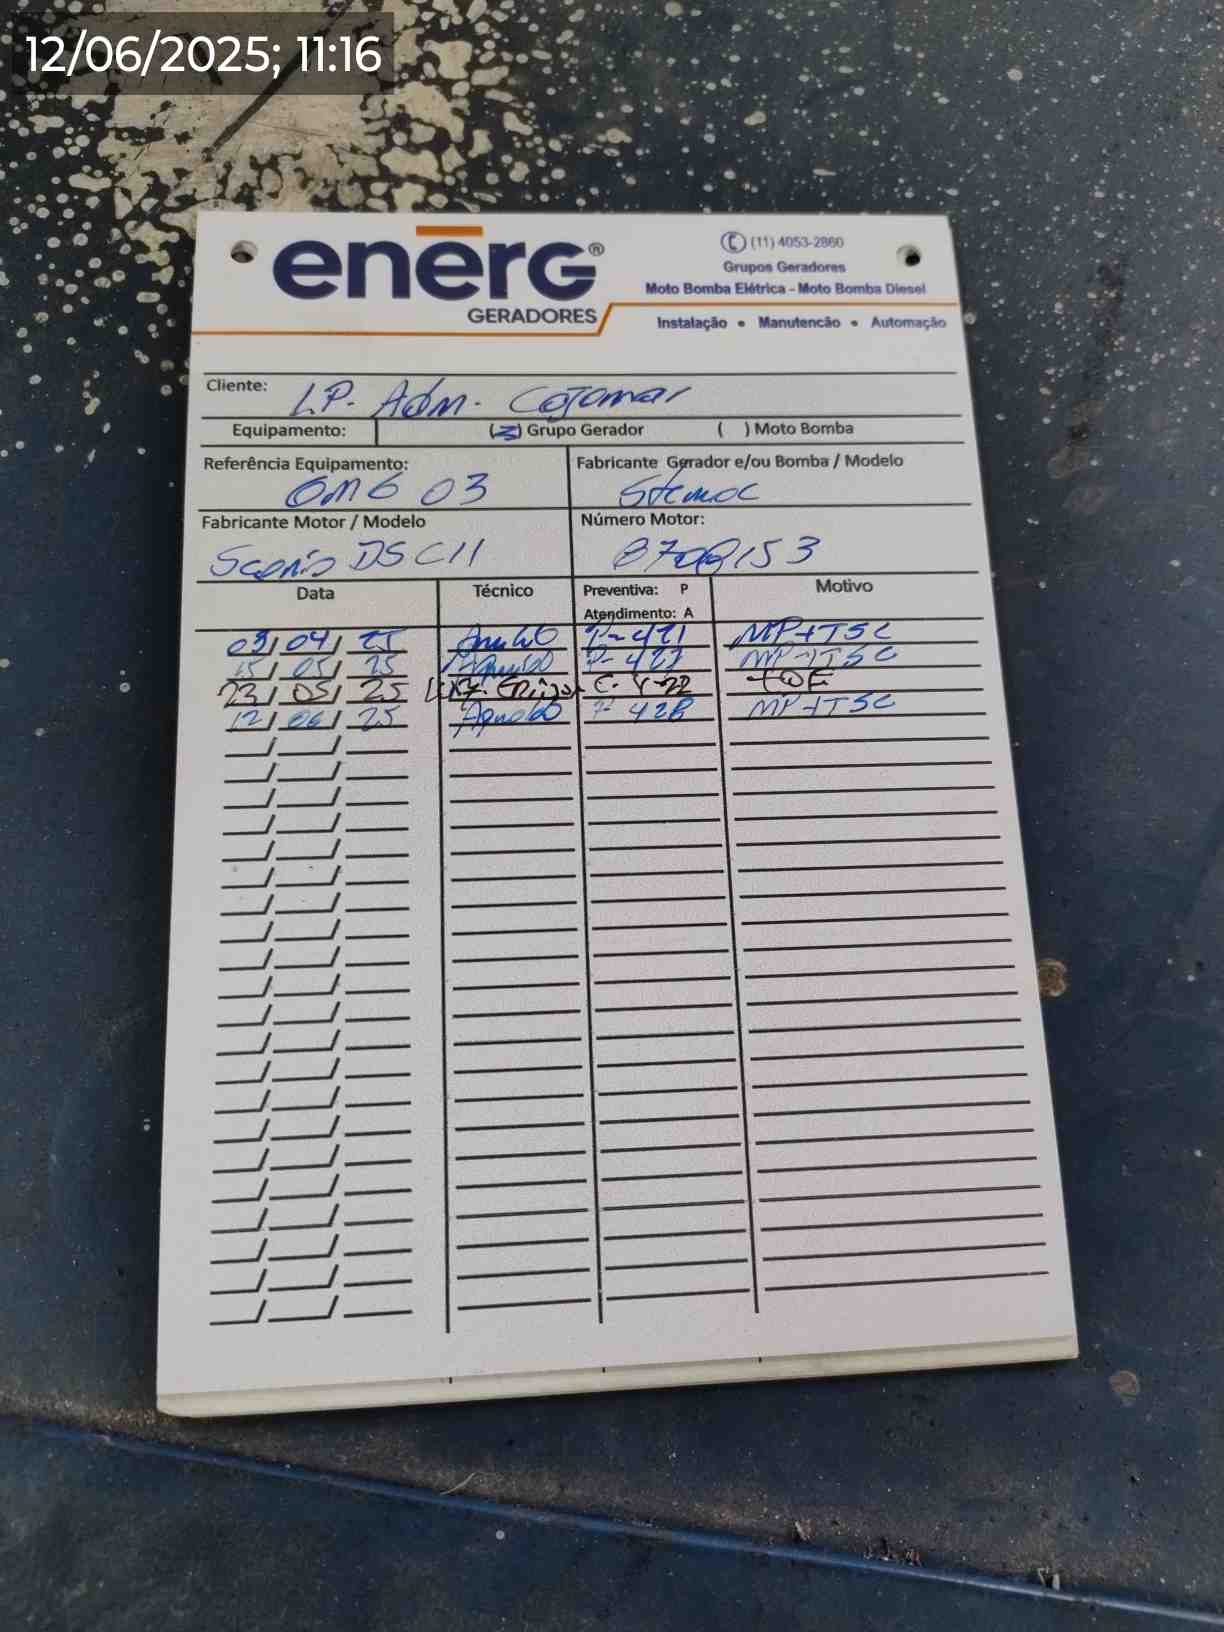 12/06/2025; 11:16
enērG®
GERADORES
(11) 4053-2860
Grupos Geradores
Moto Bomba Elétrica - Moto Bomba Diesel
Instalação • Manutencão • Automação
Cliente: L.P. Adm. Cajamar
Equipamento: ( ) Grupo Gerador ( ) Moto Bomba
Referência Equipamento: GMG 03
Fabricante Gerador e/ou Bomba / Modelo Stemac
Fabricante Motor / Modelo Scania DSC11
Número Motor: 8708153
Data Técnico Preventiva: P Atendimento: A Motivo
03/04/25 Arnaldo P-421 MP+TSC
15/05/25 Arnaldo P-427 MP+TSC
23/05/25
12/06/25 Arnaldo P-428 MP+TSC